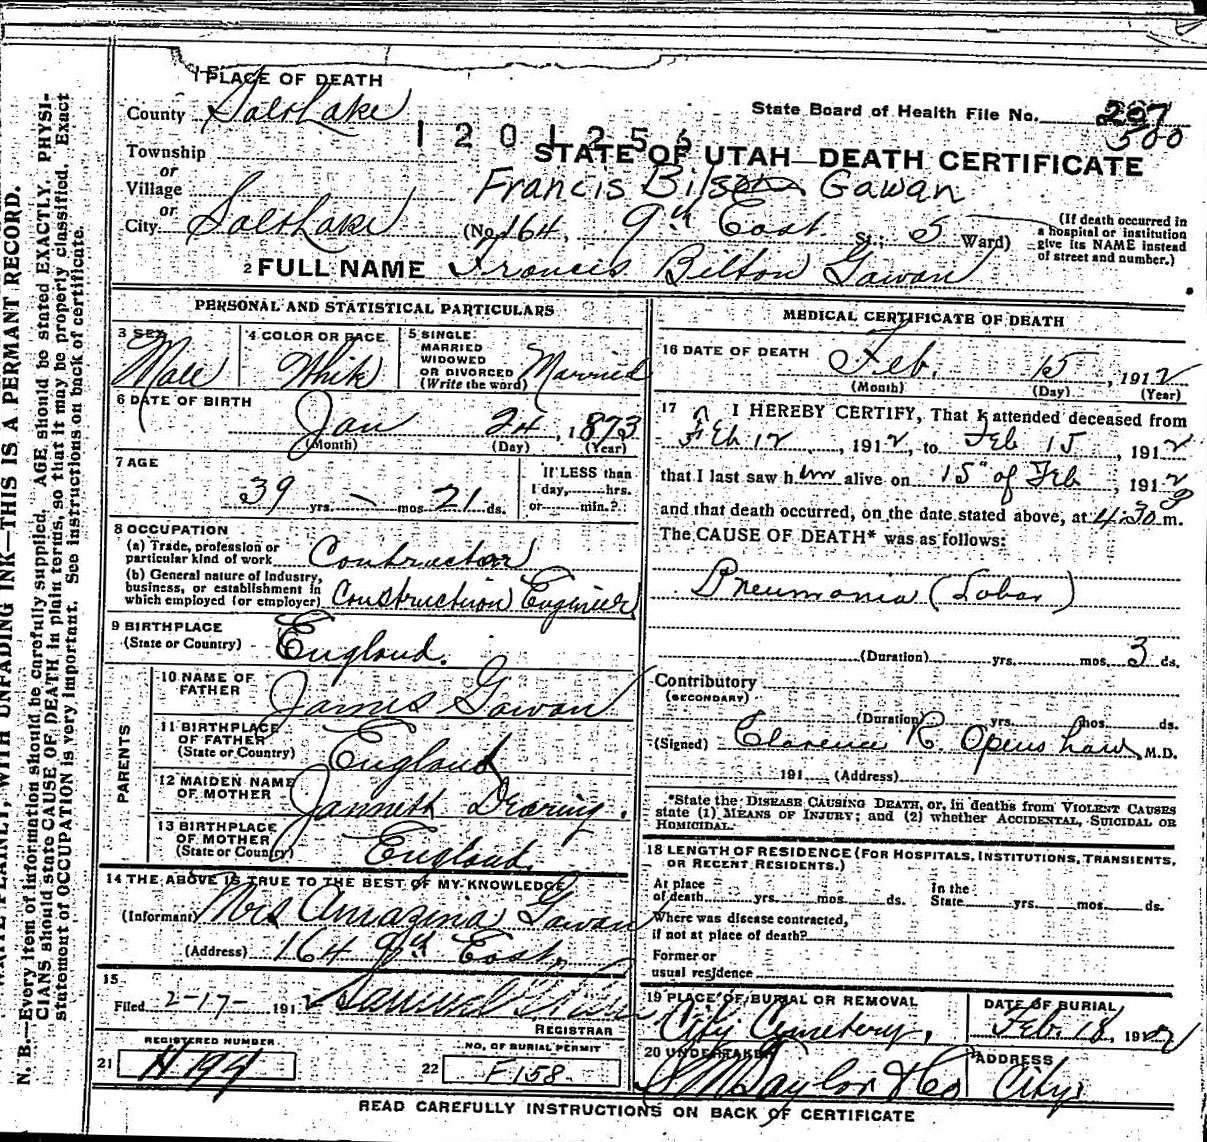 1 PLACE OF DEATH
County Salt Lake
State Board of Health File No. 207
500
1201256
Township
or
Village
or
STATE OF UTAH—DEATH CERTIFICATE
Francis Gawan
City Salt Lake (No. 164, 9th East St.; 5 Ward)
(If death occurred in a hospital or institution give its NAME instead of street and number.)
2 FULL NAME Francis Bilton Gawan
PERSONAL AND STATISTICAL PARTICULARS
3 SEX Male
4 COLOR OR RACE White
5 SINGLE MARRIED WIDOWED OR DIVORCED (Write the word) Married
6 DATE OF BIRTH
Jan 24, 1873
(Month) (Day) (Year)
7 AGE
39 yrs. – mos. 21 ds.
If LESS than 1 day, hrs. or min.?
8 OCCUPATION
(a) Trade, profession or particular kind of work Contractor
(b) General nature of industry, business, or establishment in which employed (or employer) Construction Engineer
9 BIRTHPLACE
(State or Country) England.
PARENTS
10 NAME OF FATHER James Gawan
11 BIRTHPLACE OF FATHER (State or Country) England
12 MAIDEN NAME OF MOTHER Janneth Dearing.
13 BIRTHPLACE OF MOTHER (State or Country) England
14 THE ABOVE IS TRUE TO THE BEST OF MY KNOWLEDGE
(Informant) Mrs Amazina Gawan
(Address) 164 9th East
15
Filed 2-17- 1912 Samuel
REGISTRAR
REGISTERED NUMBER
21 H 194
NO. OF BURIAL PERMIT
22 F158
MEDICAL CERTIFICATE OF DEATH
16 DATE OF DEATH Feb. 15, 1912
(Month) (Day) (Year)
17 I HEREBY CERTIFY, That I attended deceased from
Feb 12, 1912, to Feb 15, 1912
that I last saw him alive on 15" of Feb, 1912
and that death occurred, on the date stated above, at 4:30 P m.
The CAUSE OF DEATH* was as follows:
Pneumonia (Lobar)
(Duration) yrs. mos. 3 ds.
Contributory
(SECONDARY)
(Duration) yrs. mos. ds.
(Signed) Clarence R. Openshaw, M.D.
191 (Address)
*State the DISEASE CAUSING DEATH, or, in deaths from VIOLENT CAUSES
state (1) MEANS OF INJURY; and (2) whether ACCIDENTAL, SUICIDAL OR
HOMICIDAL.
18 LENGTH OF RESIDENCE (FOR HOSPITALS, INSTITUTIONS, TRANSIENTS,
OR RECENT RESIDENTS.)
At place of death yrs. mos. ds. In the State yrs. mos. ds.
Where was disease contracted,
if not at place of death?
Former or
usual residence
19 PLACE OF BURIAL OR REMOVAL
City Cemetery,
DATE OF BURIAL
Feb. 18, 1912
20 UNDERTAKER
S M Taylor & Co
ADDRESS
City
READ CAREFULLY INSTRUCTIONS ON BACK OF CERTIFICATE
PLAINLY, WITH UNFADING INK—THIS IS A PERMANT RECORD.
N. B.—Every item of information should be carefully supplied. AGE should be stated EXACTLY. PHYSI-
CIANS should state CAUSE OF DEATH in plain terms, so that it may be properly classified. Exact
statement of OCCUPATION is very important. See instructions on back of certificate.